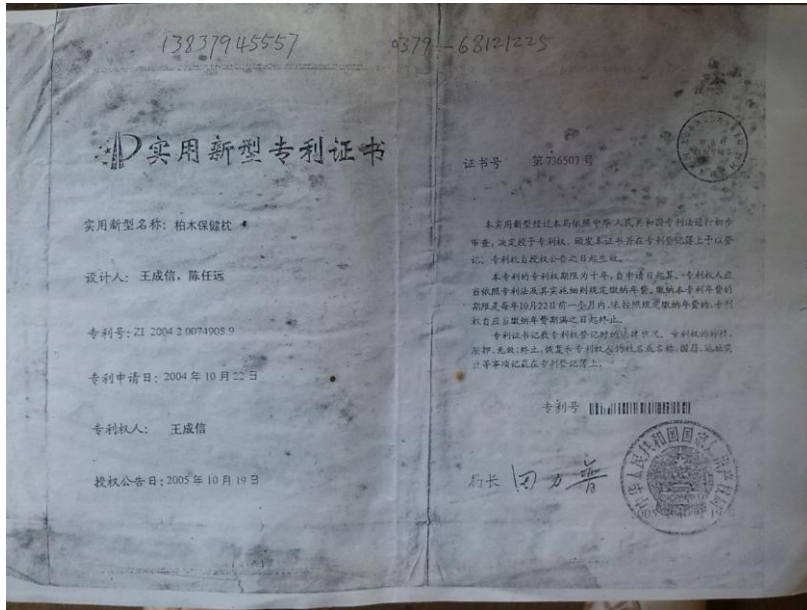 13837945557 0379-68121225
实用新型专利证书
实用新型名称：柏木保健枕
设计人：王成信，陈任远
专利号：ZL 2004 2 0074908.9
专利申请日：2004 年 10 月 22 日
专利权人： 王成信
授权公告日：2005 年 10 月 19 日
证书号 第 736507 号
本实用新型经过本局依照中华人民共和国专利法进行初步
审查，决定授予专利权，颁发本证书并在专利登记簿上予以登
记。专利权自授权公告之日起生效。
本专利的专利权期限为十年，自申请日起算。专利权人应
当依照专利法及其实施细则规定缴纳年费。缴纳本专利年费的
期限是每年10月22日前一个月内。未按照规定缴纳年费的，专利
权自应当缴纳年费期满之日起终止。
专利证书记载专利权登记时的法律状况。专利权的转移、
质押、无效、终止、恢复和专利权人的姓名或名称、国籍、地址变
更等事项记载在专利登记簿上。
专利号
局长 田力普
中华人民共和国国家知识产权局